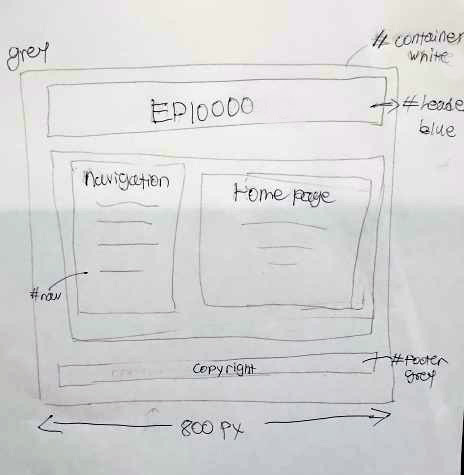 grey
# container
white
EP10000
# Heade
blue
Navigation
Home page
#nav
Copyright
# Footer
grey
800 PX